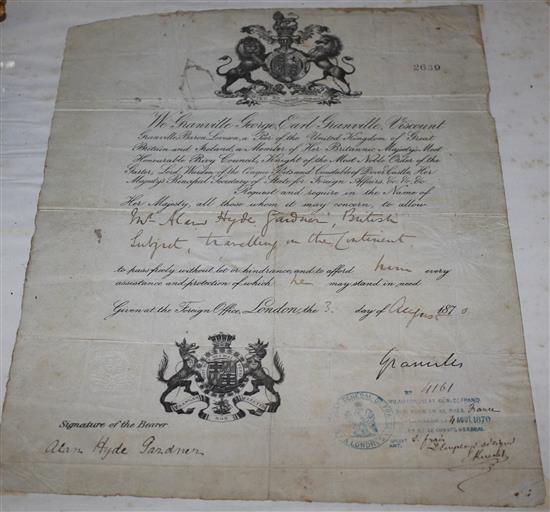 2639
We Granville George, Earl Granville, Viscount
Granville, Baron Leveson, a Peer of the United Kingdom of Great
Britain and Ireland, a Member of Her Britannic Majesty's Most
Honourable Privy Council, Knight of the Most Noble Order of the
Garter, Lord Warden of the Cinque Ports and Constable of Dover Castle, Her
Majesty's Principal Secretary of State for Foreign Affairs, &c. &c. &c.
Request and require in the Name of
Her Majesty, all those whom it may concern, to allow
Alan Hyde Gardner, British
Subject, travelling on the Continent
to pass freely without let or hindrance, and to afford him every
assistance and protection of which he may stand in need
Given at the Foreign Office, London, the 3. day of August 1870
Granville
4161
France
4 AOUT 1870
A LONDRES
Signature of the Bearer
Alan Hyde Gardner